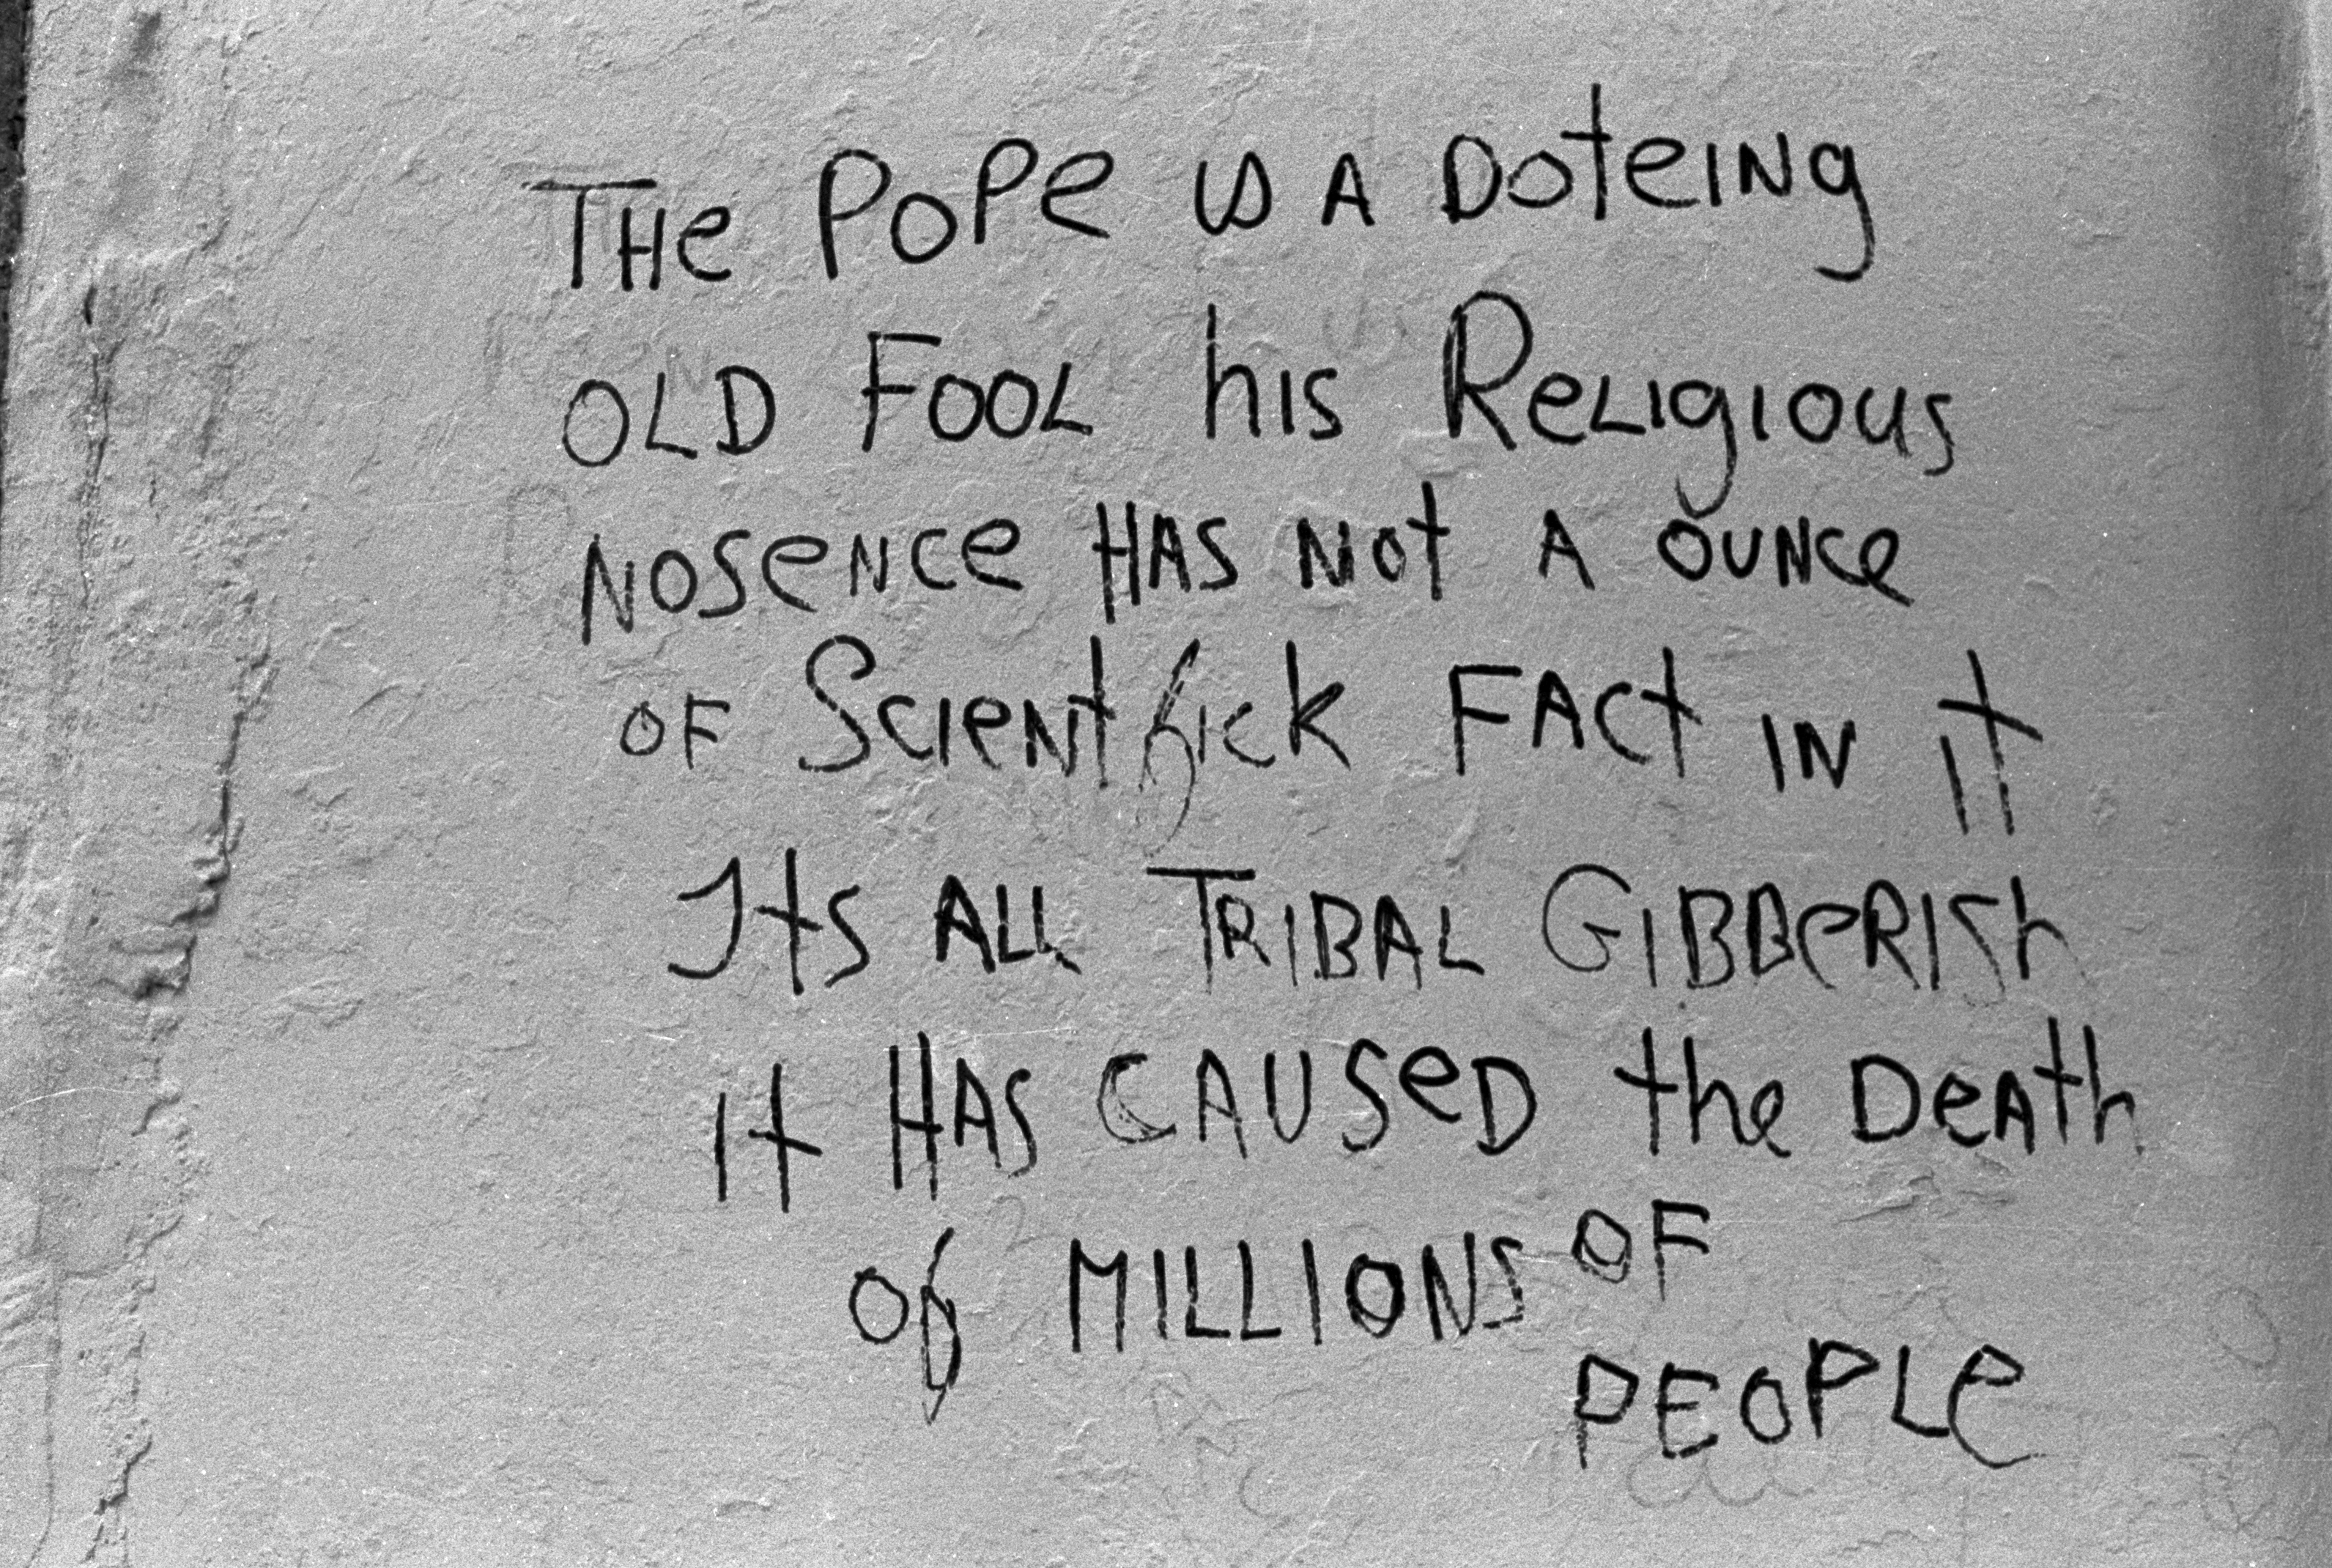 THe PoPe is A DoteiNg
OLD FOOL his ReLigious
NoseNce HAS Not A OUNce
OF ScieNtfick FAct iN it
Its ALL TRIBAL GIBBeRISh
it HAS CAUSeD the DeAth
of MILLIONS OF
PEOPLe